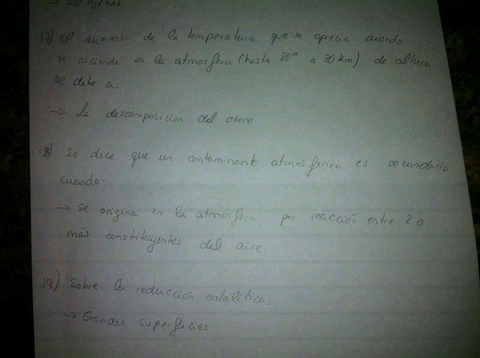 17) El aumento de la temperatura que se aprecia cuando
se asciende en la atmosfera (hasta 80° a 90 km) de altura
se debe a:
→ La descomposicion del ozono
18) Se dice que un contaminante atmosferico es secundario
cuando:
→ Se origina en la atmosfera por reacción entre 2 o
más constituyentes del aire
19) Sobre la reducción catalítica:
→ Grandes superficies